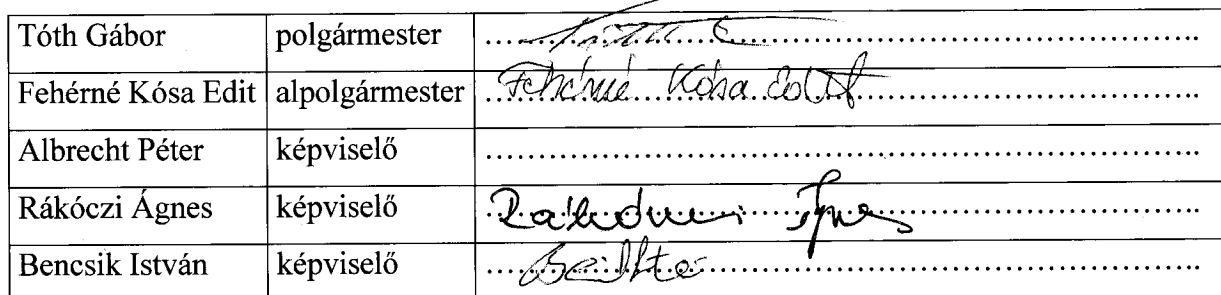 Tóth Gábor polgármester ........................
Fehérné Kósa Edit alpolgármester Fehérné Kósa Edit
Albrecht Péter képviselő ........................
Rákóczi Ágnes képviselő Ágnes
Bencsik István képviselő ........................